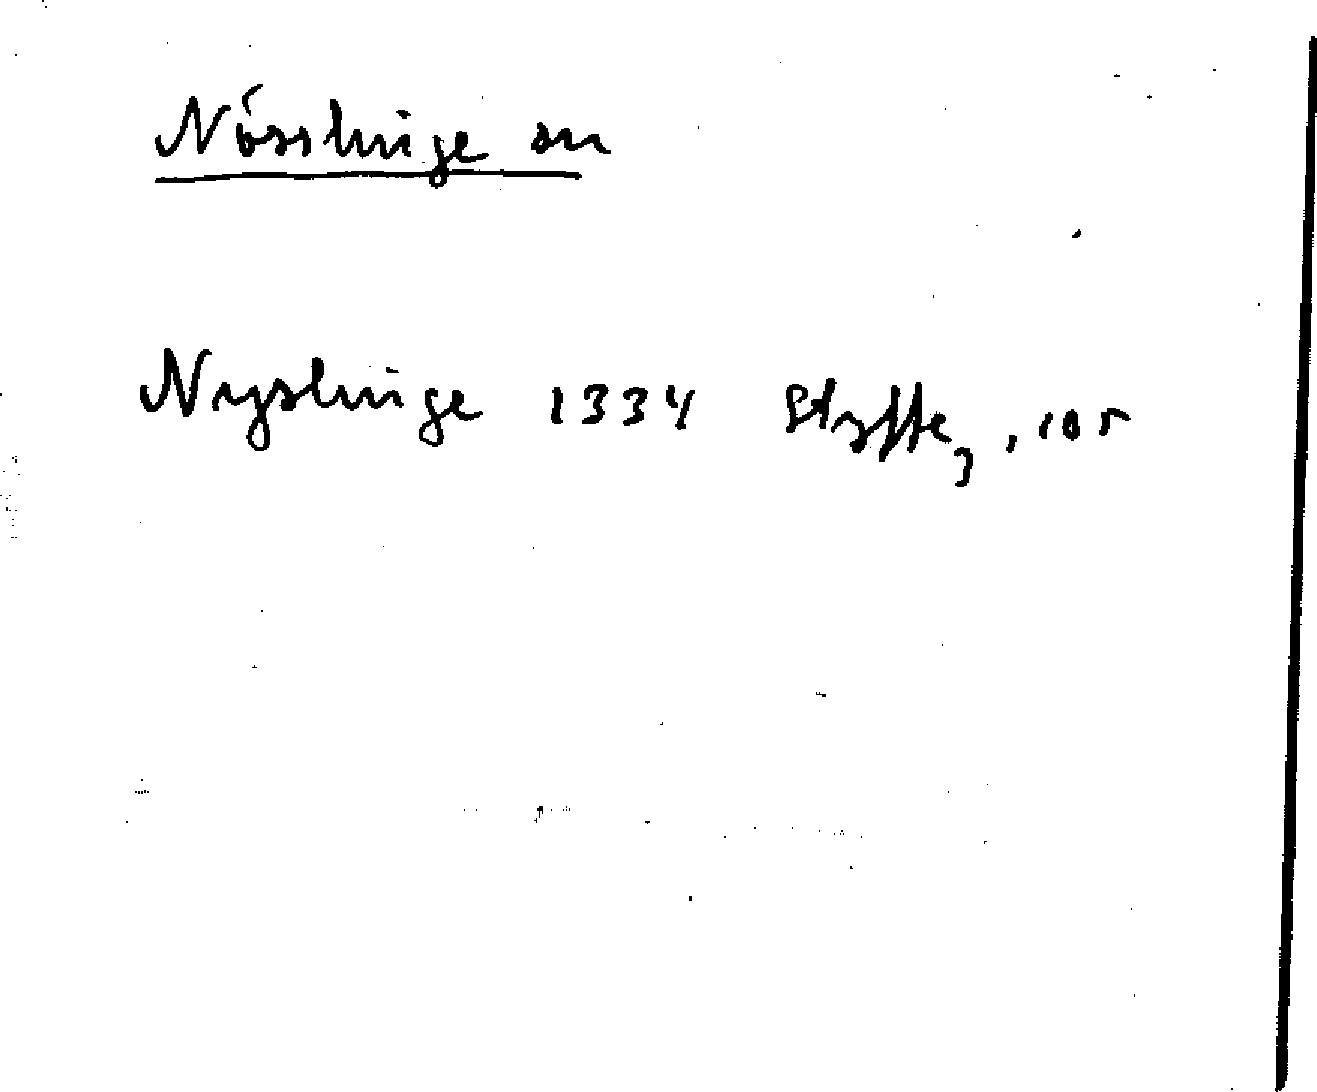 Nösslinge sn
Nyslinge 1334 Styffe₃, 105